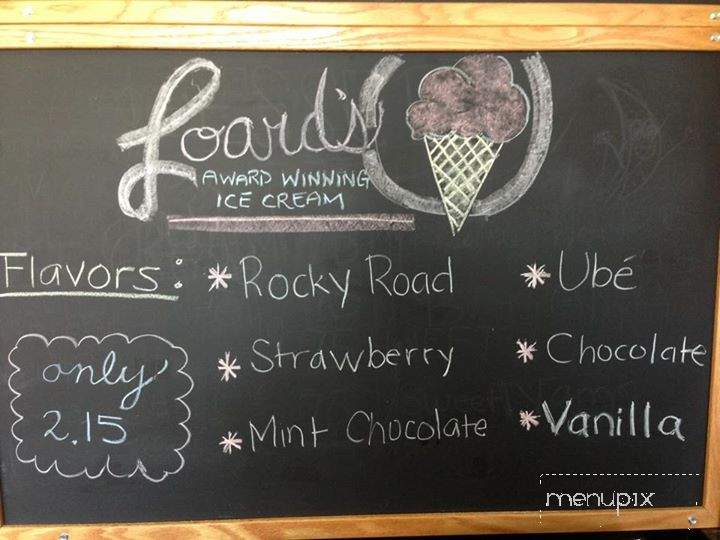 Loard's
AWARD WINNING
ICE CREAM
Flavors:
* Rocky Road
* Ubé
* Strawberry
* Chocolate
* Mint Chocolate
* Vanilla
only
2.15
menupix